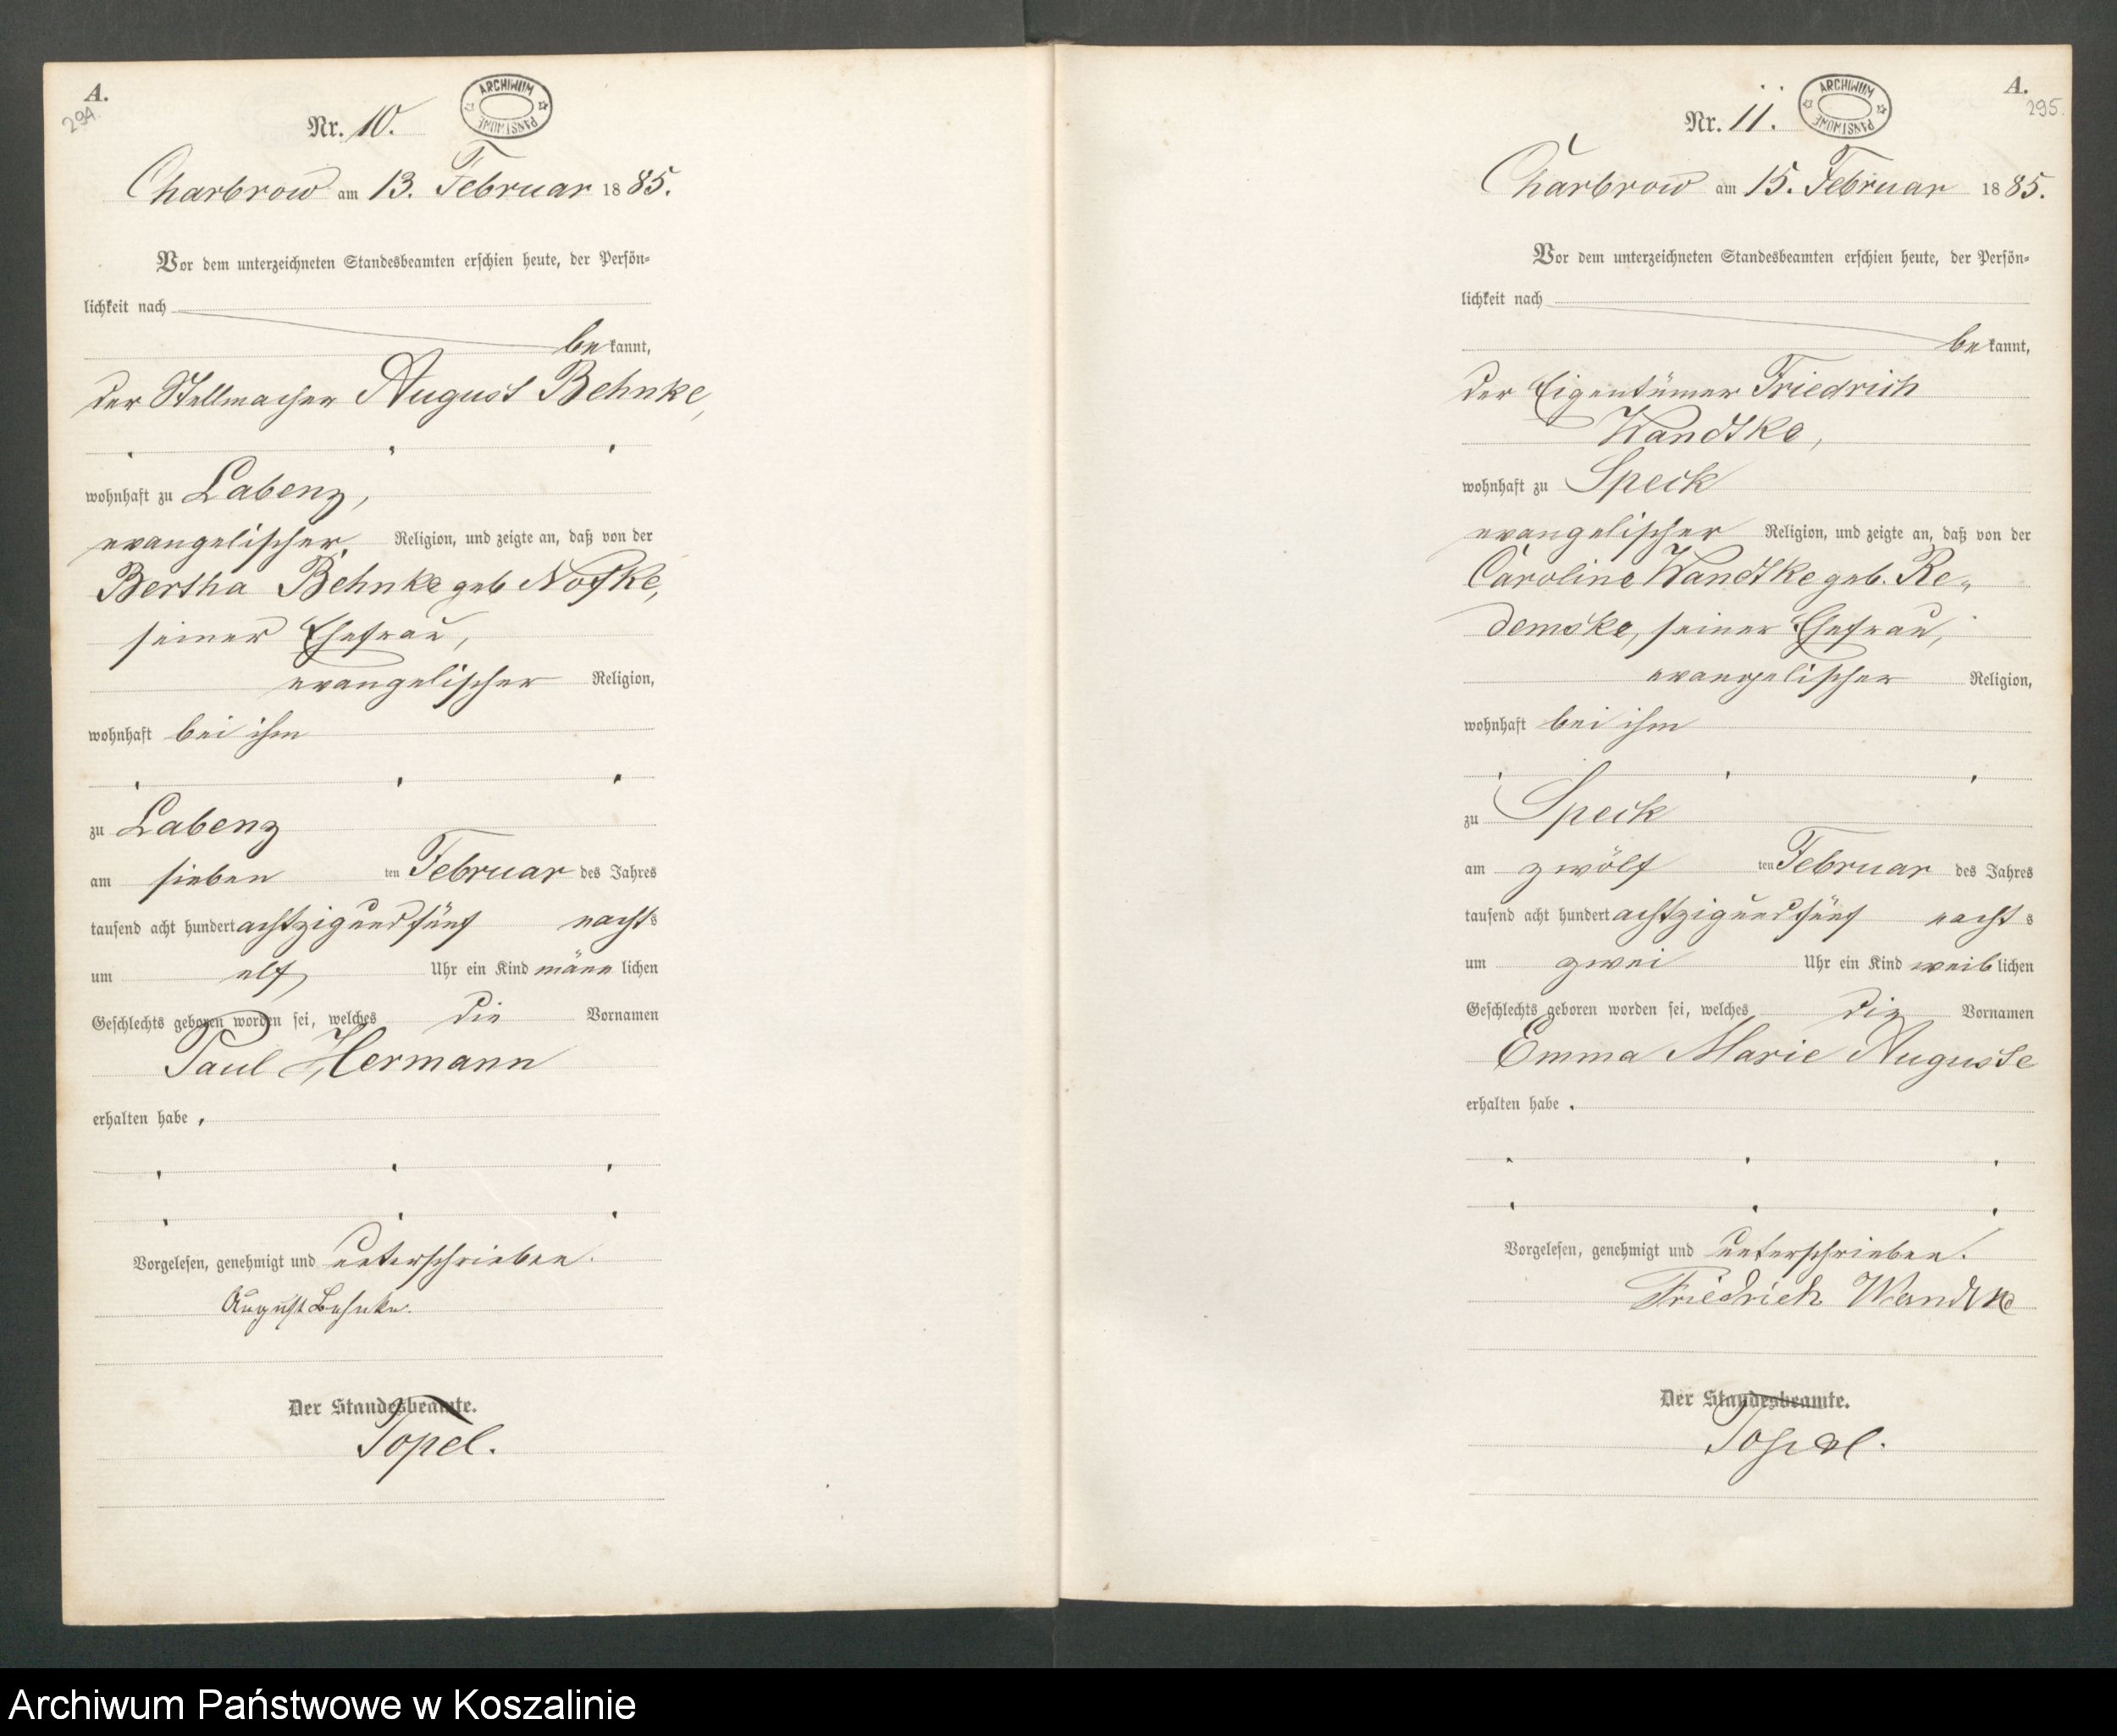 A.
294.
Nr. 10.
ARCHIWUM PAŃSTWOWE
Charbrow am 13. Februar 1885.
Vor dem unterzeichneten Standesbeamten erschien heute, der Persön-
lichkeit nach
bekannt,
der Stellmacher August Behnke,
wohnhaft zu Labenz,
evangelischer Religion, und zeigte an, daß von der
Bertha Behnke geb Noffke,
seiner Ehefrau,
evangelischer Religion,
wohnhaft bei ihm
zu Labenz
am sieben ten Februar des Jahres
tausend acht hundert achtzig und fünf nachts
um elf Uhr ein Kind männlichen
Geschlechts geboren worden sei, welches die Vornamen
Paul Hermann
erhalten habe.
Vorgelesen, genehmigt und unterschrieben.
August Behnke.
Der Standesbeamte.
Topel.
A.
295.
Nr. 11.
ARCHIWUM PAŃSTWOWE
Charbrow am 15. Februar 1885.
Vor dem unterzeichneten Standesbeamten erschien heute, der Persön-
lichkeit nach
bekannt,
der Eigentümer Friedrich
Wandtke,
wohnhaft zu Speck
evangelischer Religion, und zeigte an, daß von der
Caroline Wandtke geb. Re-
demske, seiner Ehefrau,
evangelischer Religion,
wohnhaft bei ihm
zu Speck
am zwölf ten Februar des Jahres
tausend acht hundert achtzig und fünf nachts
um zwei Uhr ein Kind weiblichen
Geschlechts geboren worden sei, welches die Vornamen
Emma Marie Auguste
erhalten habe.
Vorgelesen, genehmigt und unterschrieben.
Friedrich Wandtke
Der Standesbeamte.
Topel.
Archiwum Państwowe w Koszalinie